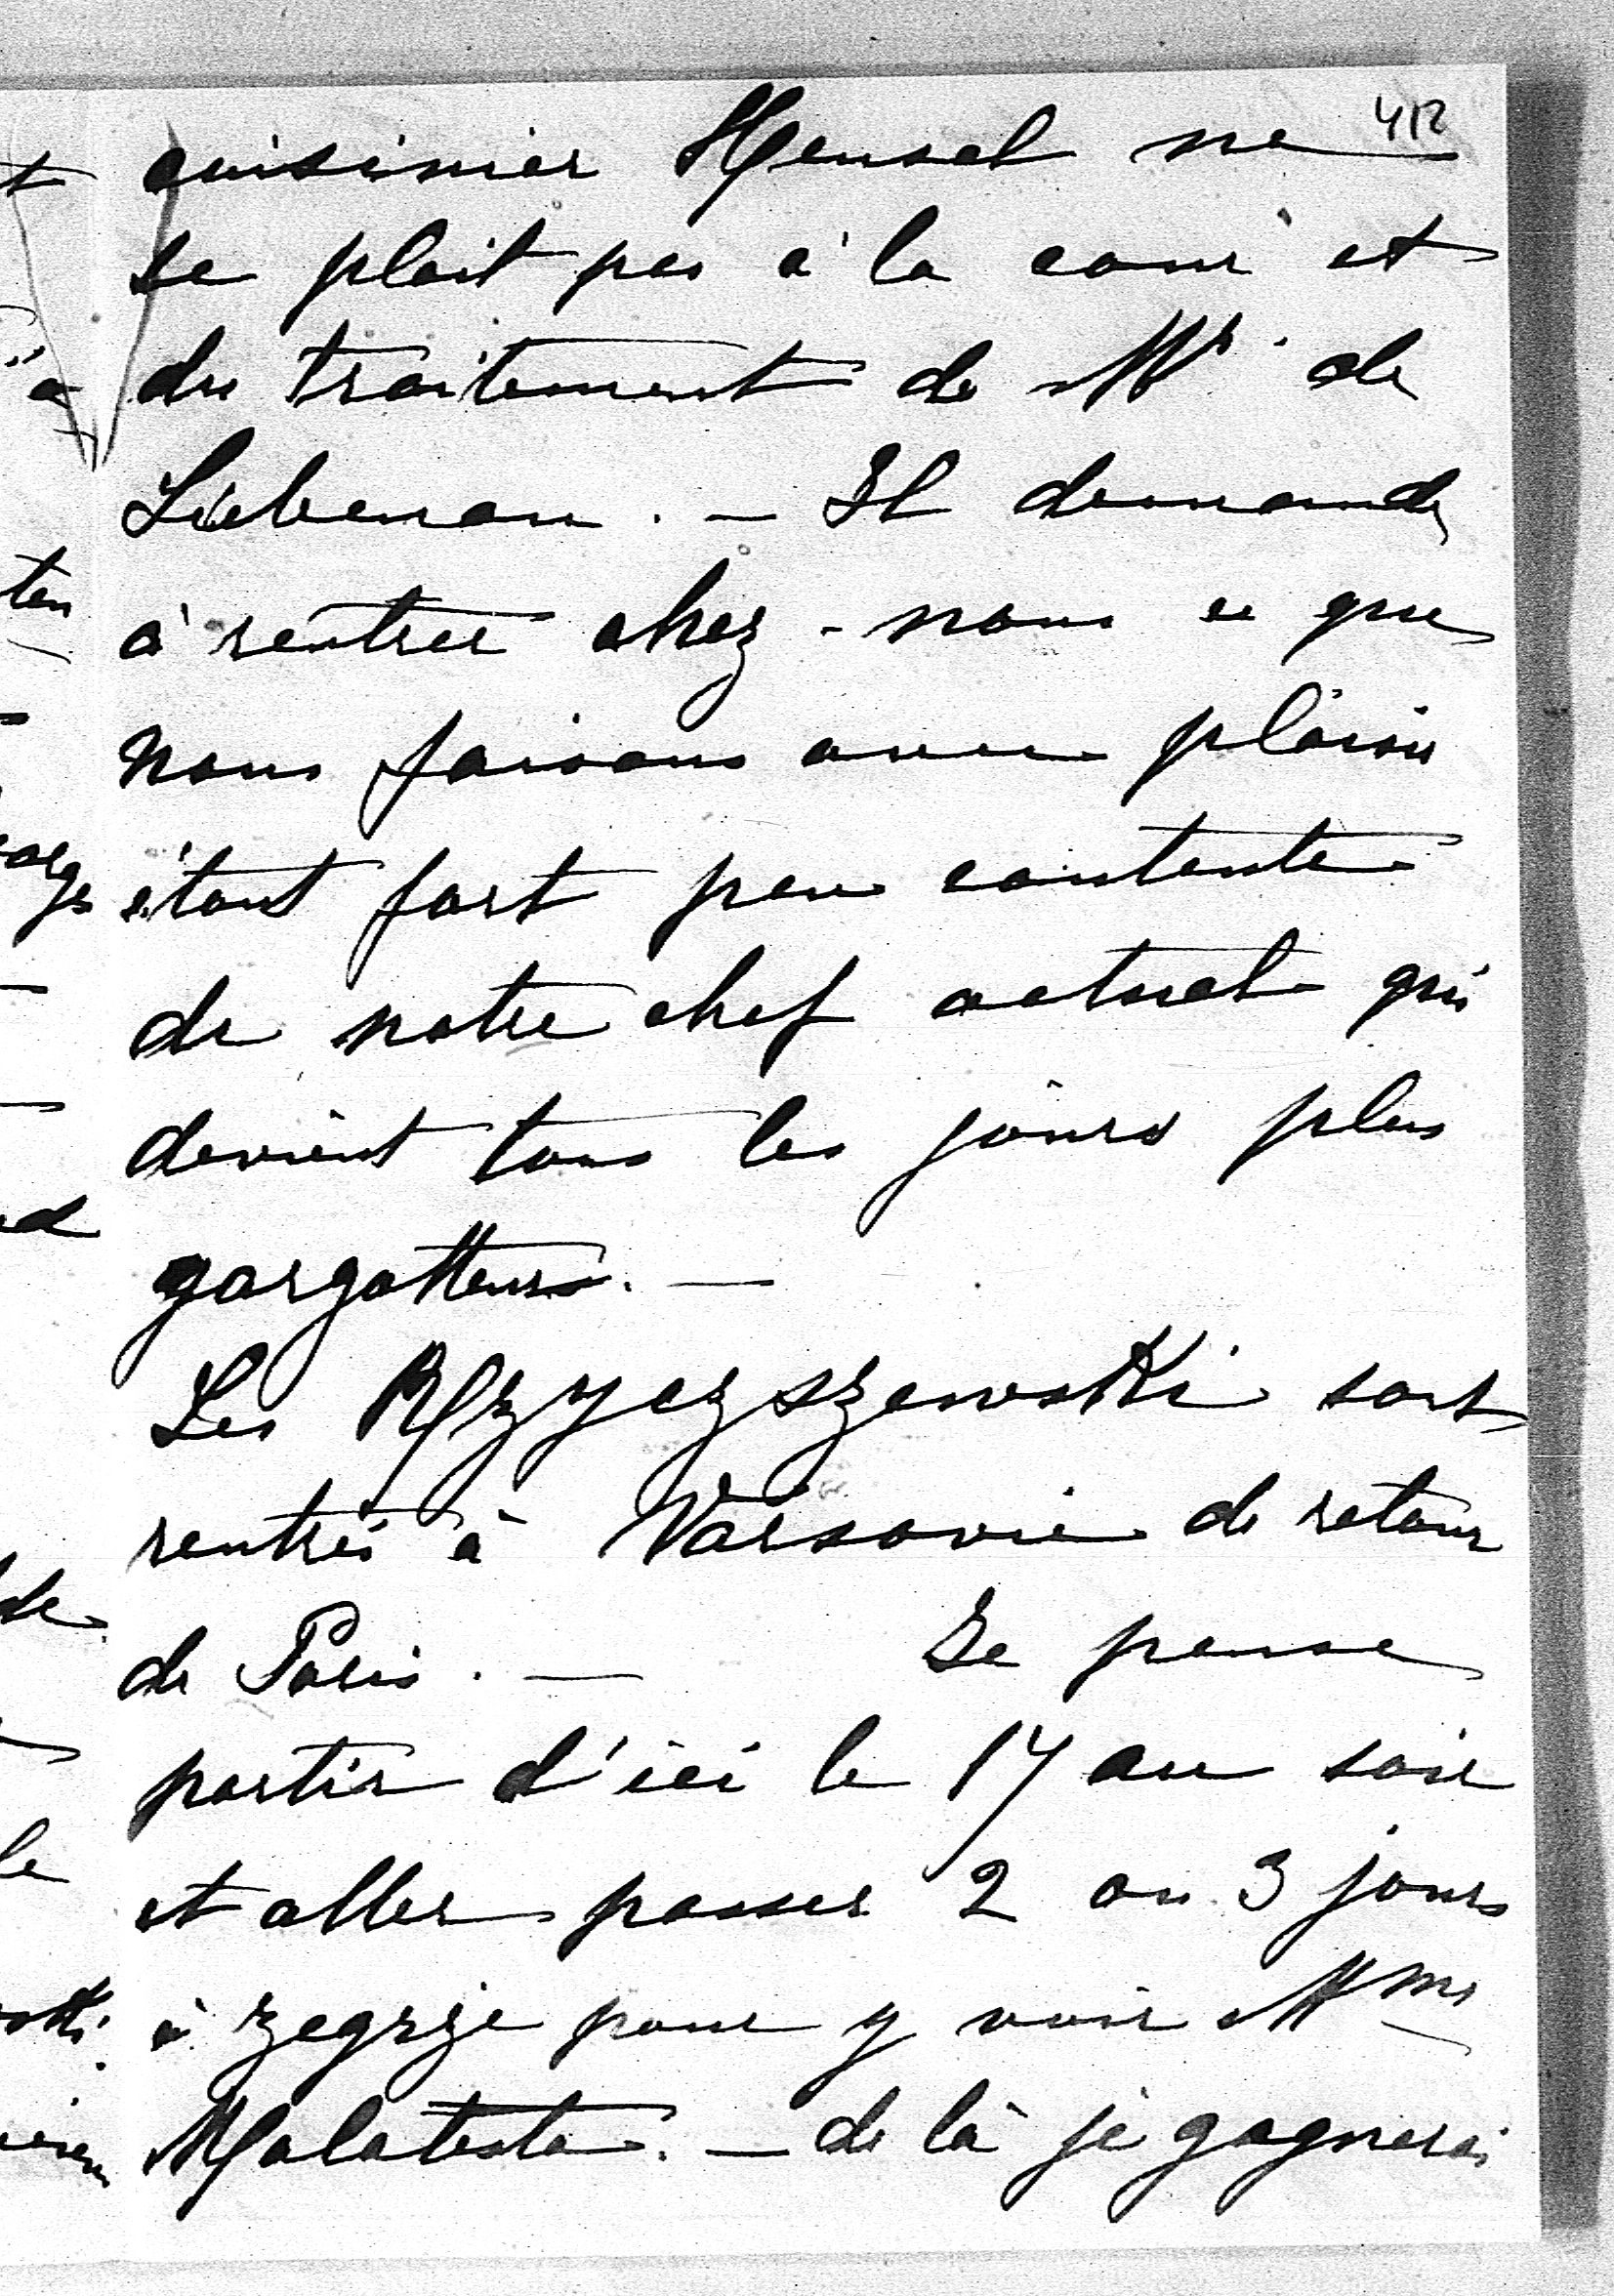 412
cuisinier Hensel ne
se plait pas à la cour et
du traitement de Mr. de
Liebenau. — Il demande
à rentrer chez-nous ce que
nous faisons avec plaisir
étant fort peu contente
de notre chef actuel qui
devient tous les jours plus
gargotteurs. —
Les sont
rentrés à Varsovie de retour
de Paris. — Je pense
partir d'ici le 17 au soir
et aller passer 2 ou 3 jours
à Zegrze pour y voir Mme
Malatesta. — de là je gagnerai